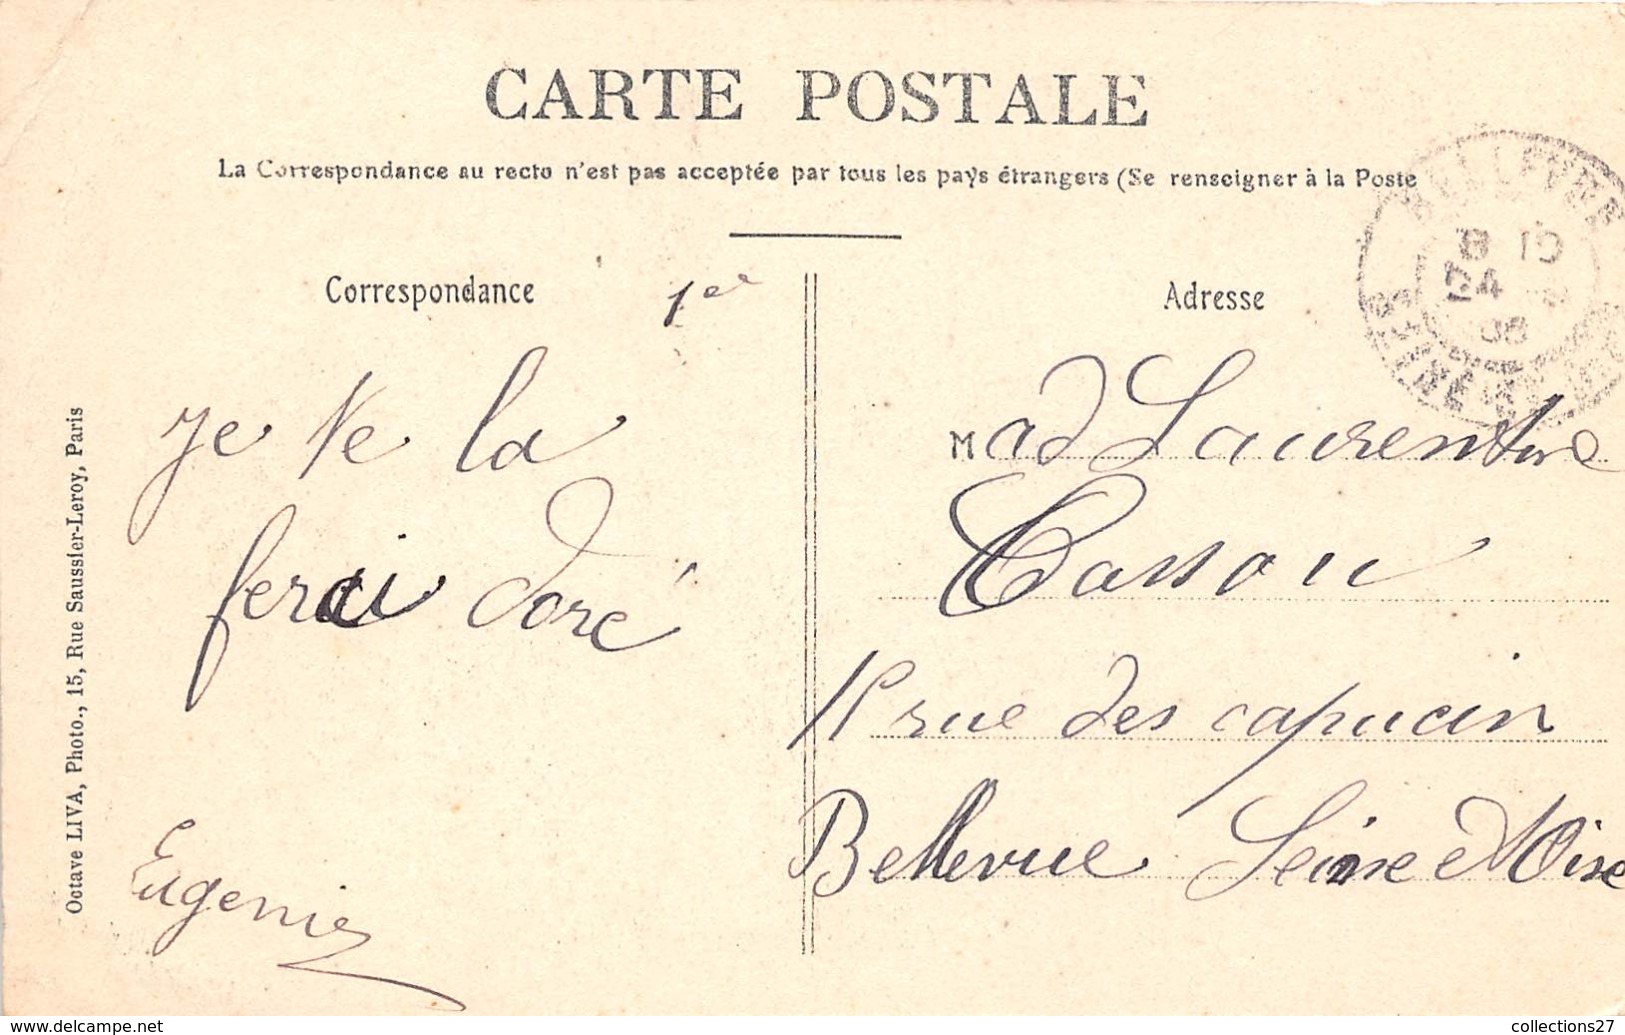 CARTE POSTALE
La Correspondance au recto n'est pas acceptée par tous les pays étrangers (Se renseigner à la Poste
Correspondance
1er
Je te la
ferai doré
Eugenie
Octave LIVA, Photo., 15, Rue Saussier-Leroy, Paris
Adresse
BELLEVUE
8 10
24
08
SEINE-ET-
Mad Laurentine
Casson
rue des capucin
Bellevue Seine et Oise
www.delcampe.net
collections27